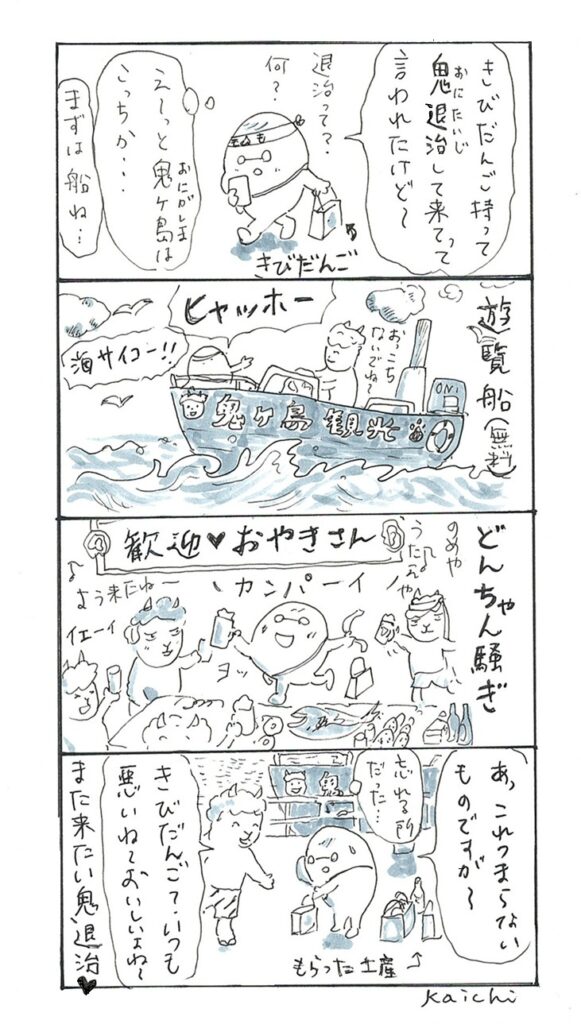 きびだんご持って
鬼退治して来てって
おにたいじ
言われたけど〜
退治って？
何？
えーっと鬼ヶ島は
おにがしま
こっちか・・・
まずは船ね…
きびだんご
遊覧船（無料）
ヒャッホー
海サイコー!!
おっこち
ないでね？
鬼ヶ島観光
どんちゃん騒ぎ
歓迎♥おやきさん
のめや
うたえや
カンパーイ
よう来たねー
イエーイ
ヨッ
あ、これつまらない
ものですが〜
忘れる所
だった…
鬼
きびだんごて・いつも
悪いね〜おいしいよね〜
もらった土産
また来たい鬼退治♥
Kaichi